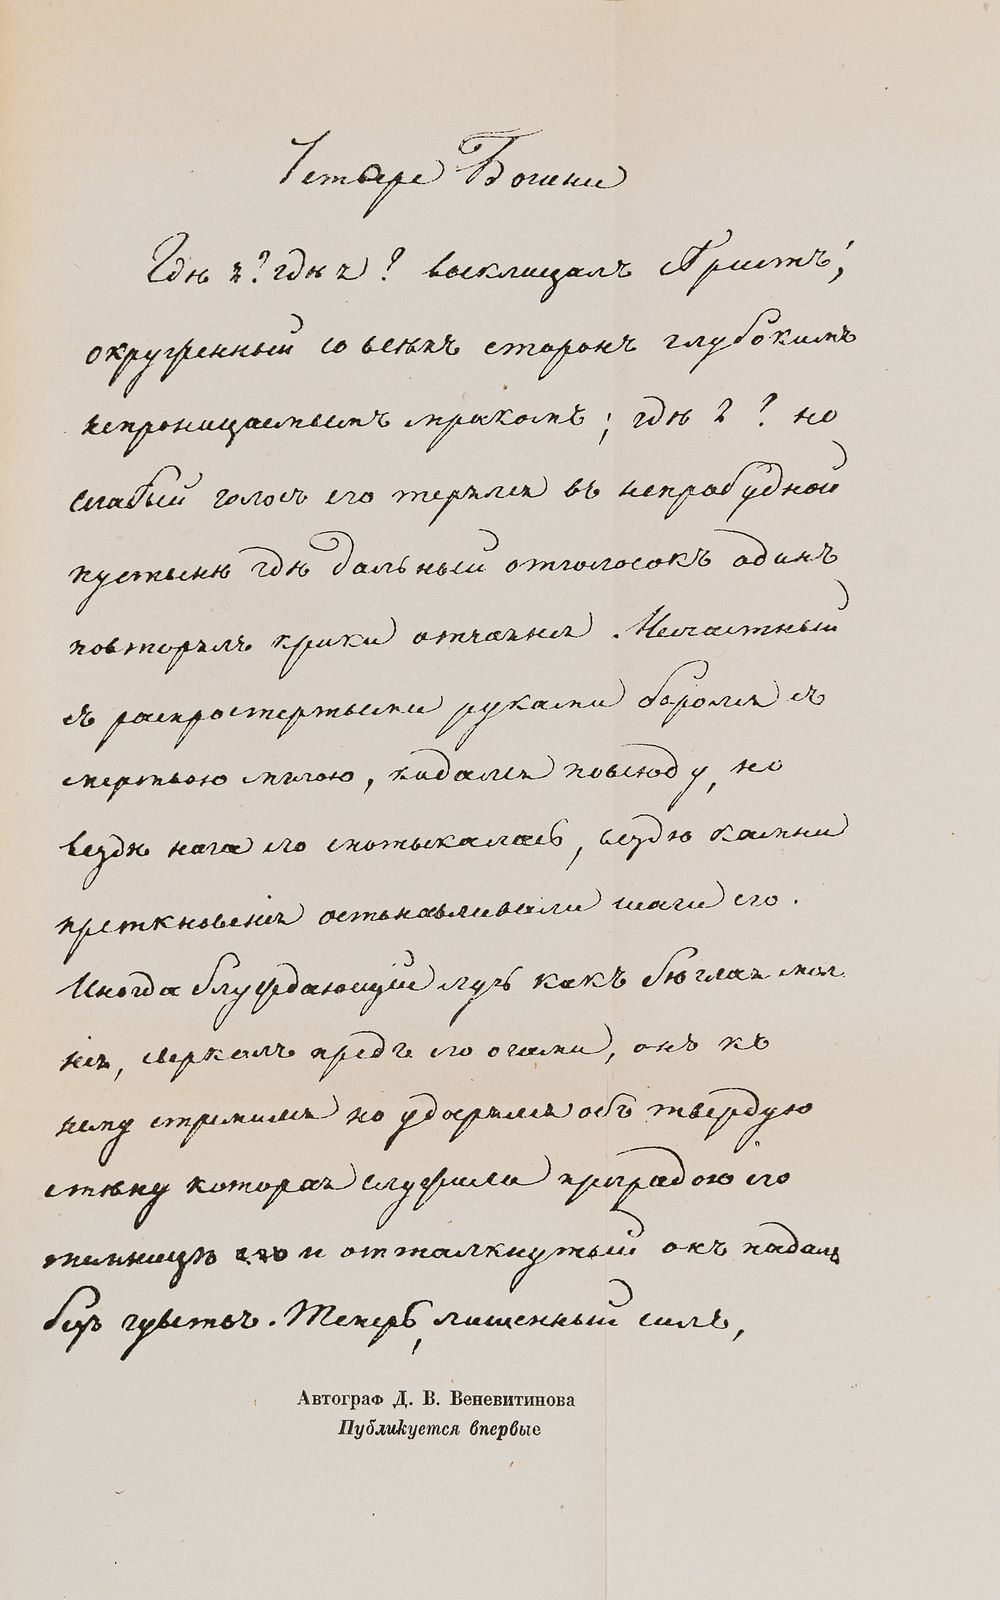 Четыре Богини
Гдѣ я? гдѣ я? восклицалъ Аристъ,
окруженный со всѣхъ сторонъ глубокимъ
непроницаемымъ мракомъ; гдѣ я? но
слабый голосъ его терялся въ непробудной
пустынѣ гдѣ дальный отголосокъ одинъ
повторялъ крики отчаянія. Нещастный
съ распростертыми руками боролся съ
мертвою мглою, кидался повсюду, но
вездѣ нага его спотыкалась, вездѣ камни
преткновенія останавливали шаги его.
Иногда блуждающій лучь какъ бѣглая мол
нія, сверкалъ предъ его очами, онъ къ
нему стремился но ударялся объ твердую
стѣну которая служила преградою его
темницѣ и оттолкнутый онъ падалъ
безъ чувствъ. Теперь, лишенный силъ,
Автограф Д. В. Веневитинова
Публикуется впервые